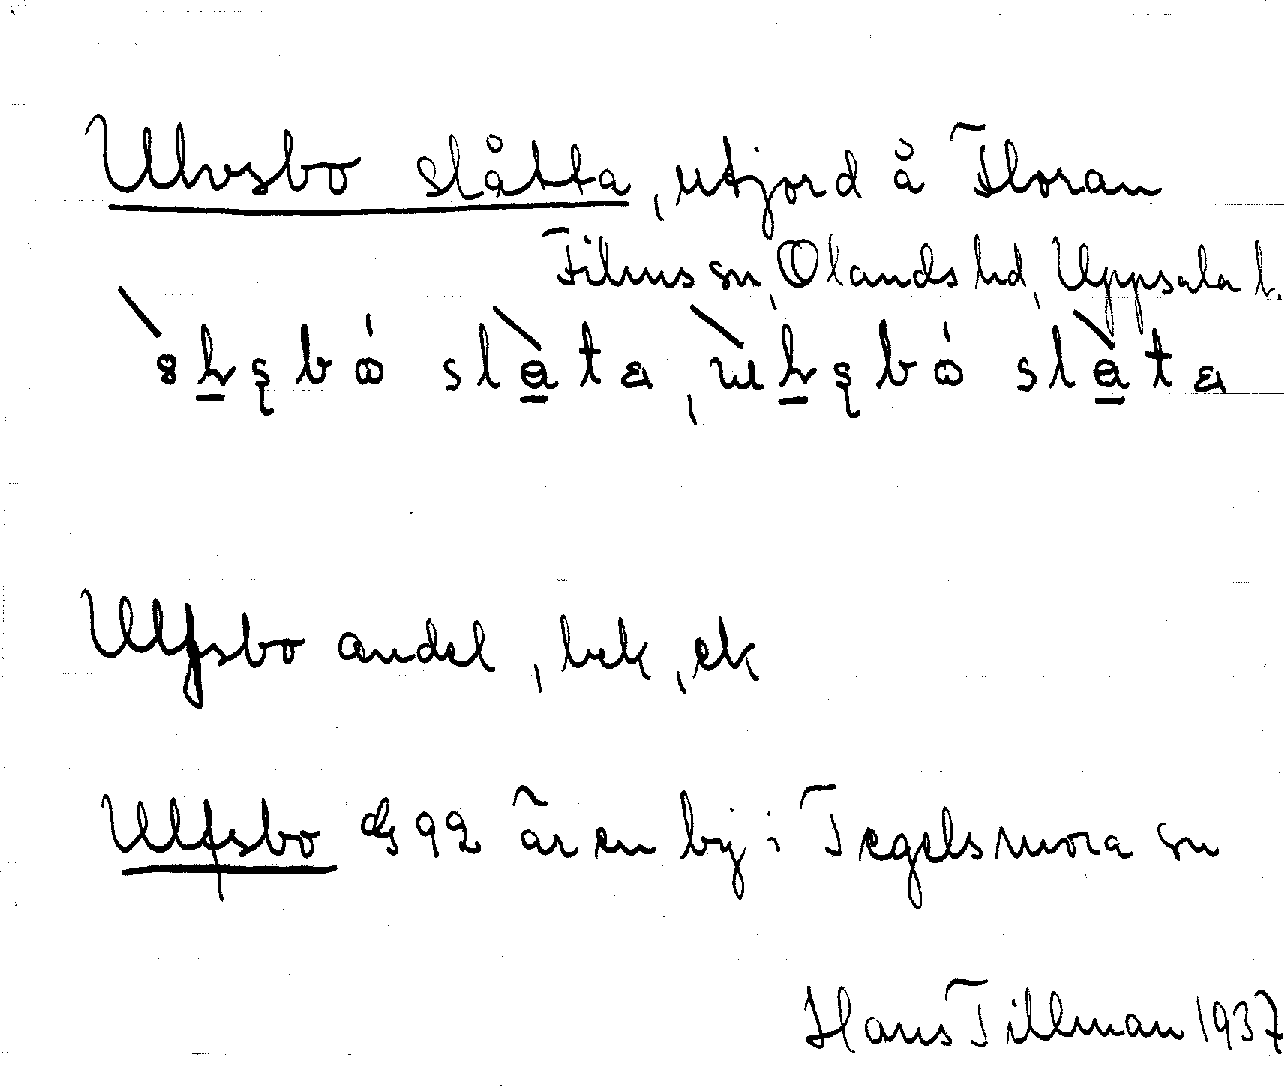 Ulvsbo slåtta, utjord å Floran
Films sn, Olands hd, Uppsala l.
Ulfsbo andel, bek, ek
Ulfsbo G 92 är en by i Tegelsmora sn
Hans Tillman 1937